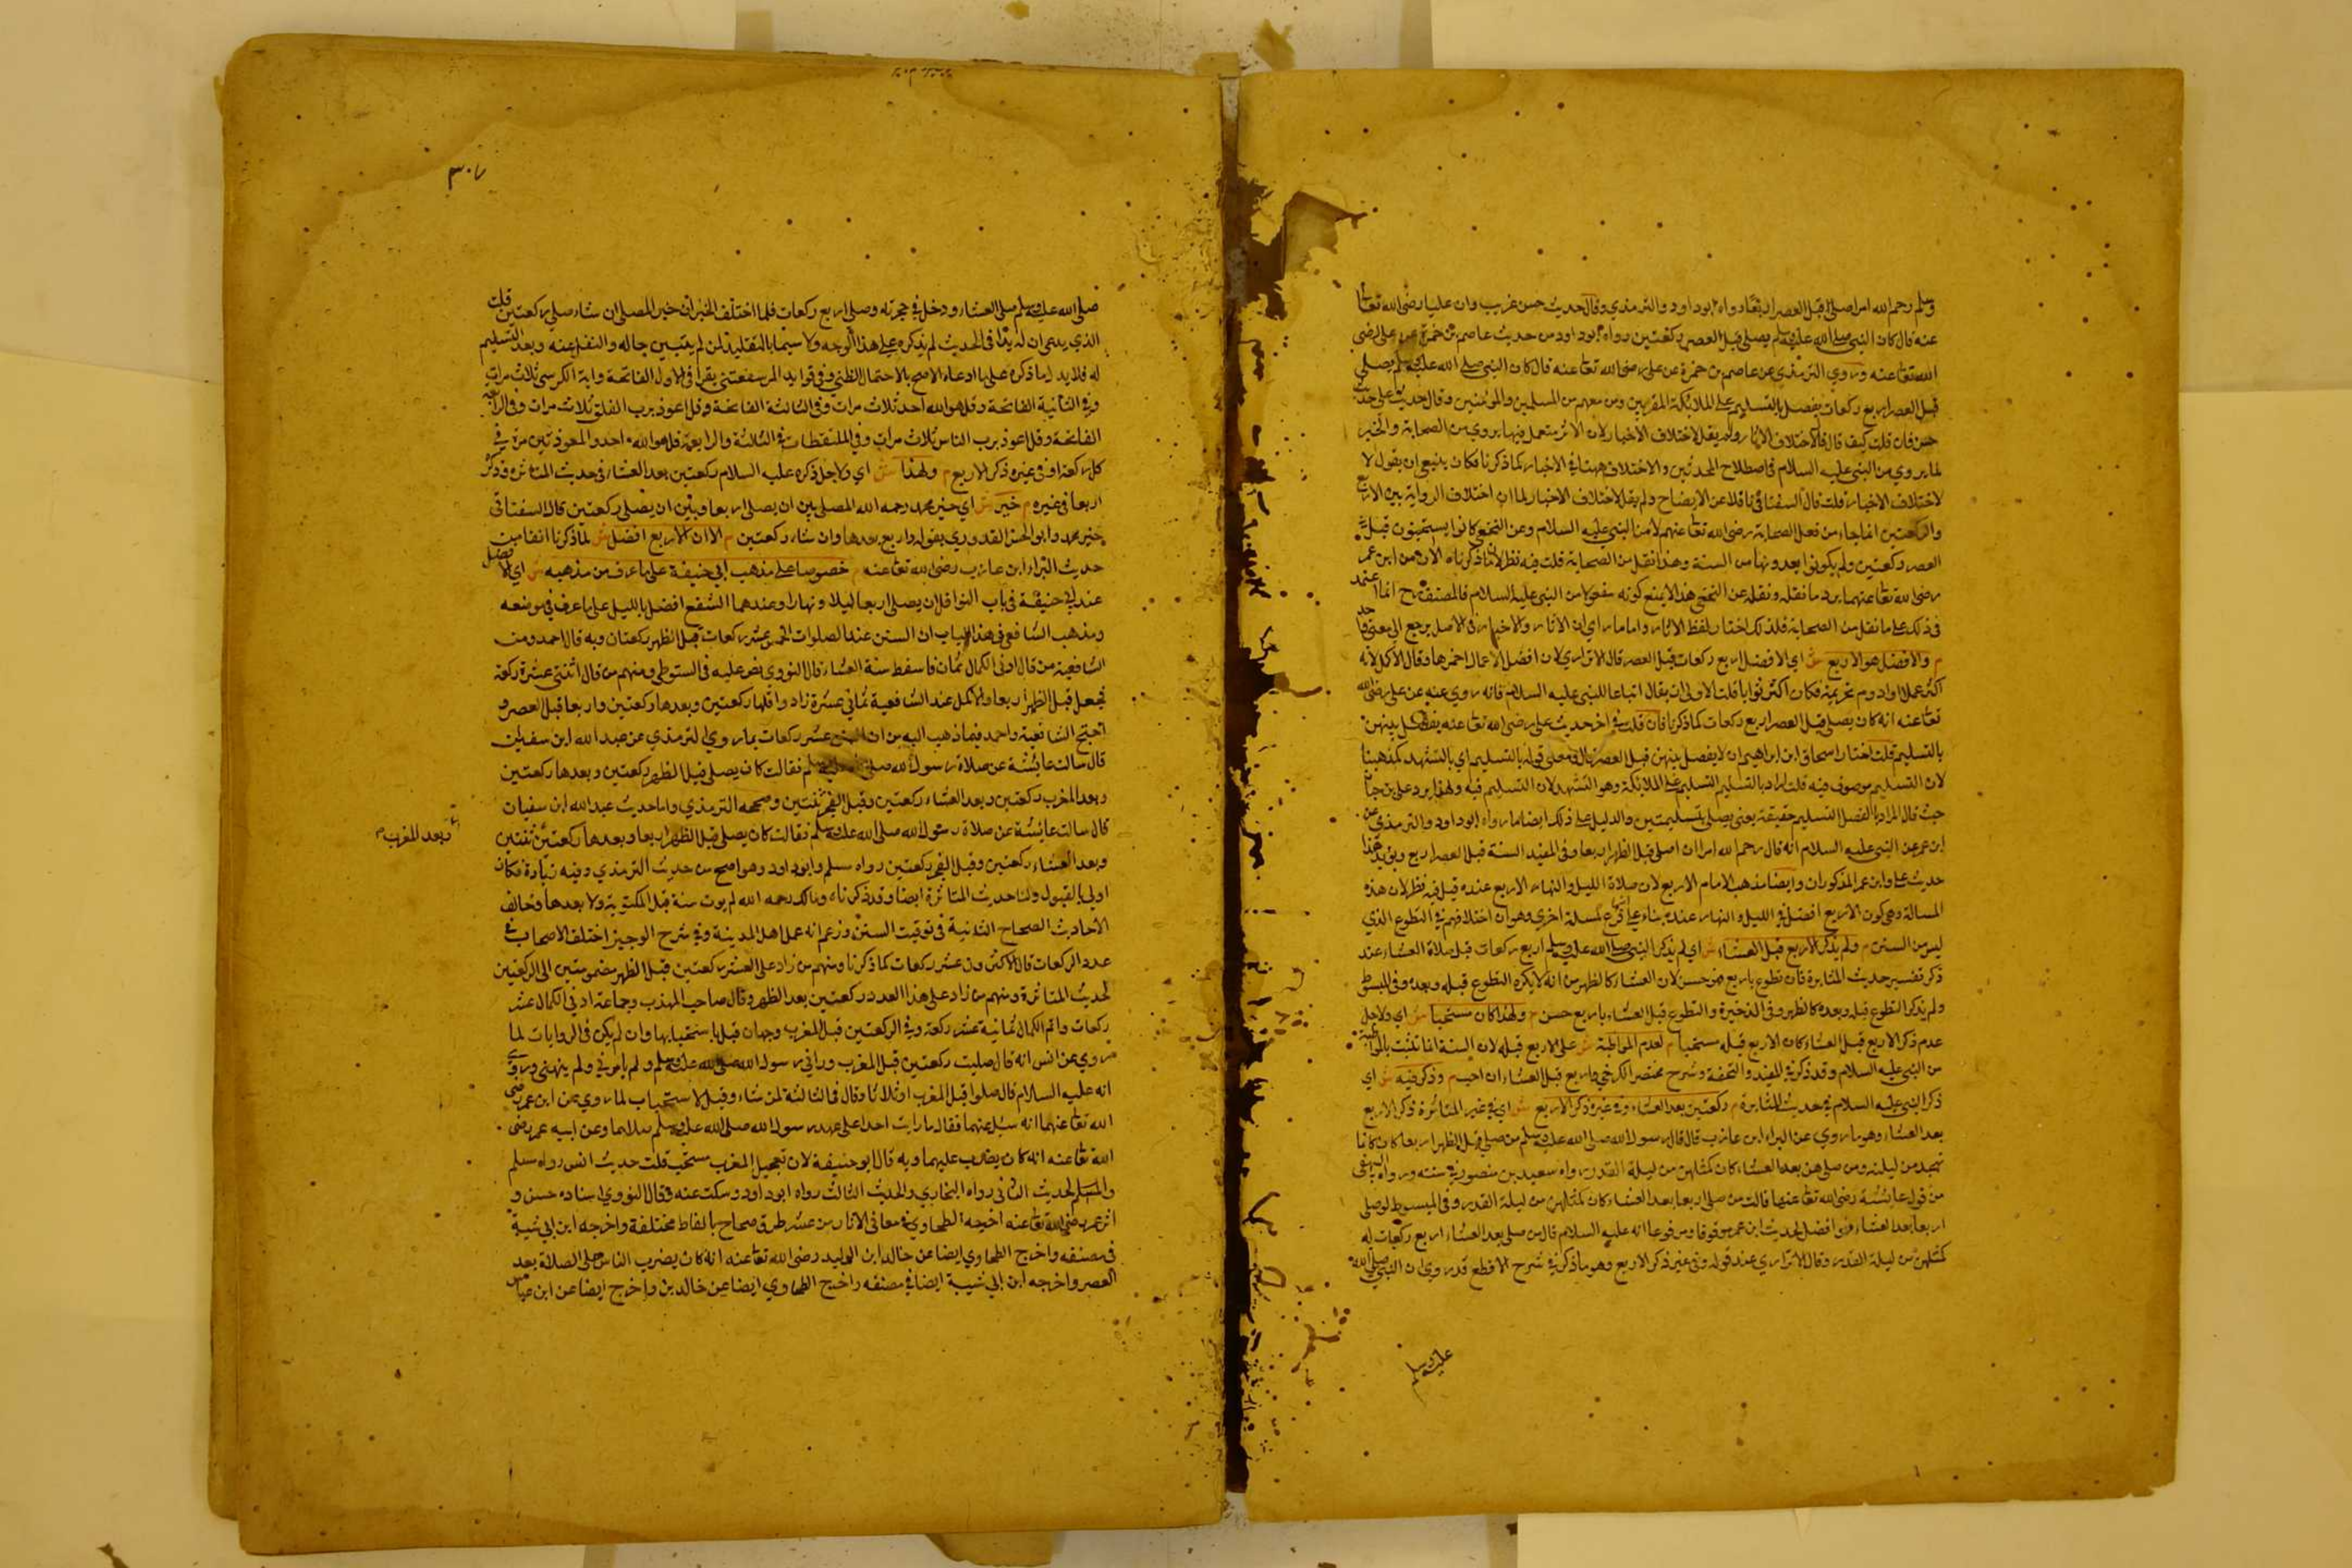 وسلم رحم الله امرا صلى قبل العصر اربعا رواه ابوداود والترمذي وقال حديث حسن غريب وان عليا رضى الله تعالى
عنه قال كان النبي صلى الله عليه وسلم يصلي قبل العصر ركعتين رواه ابوداود من حديث عاصم بن ضمرة عن على رضى
الله تعالى عنه وروي الترمذي عن عاصم بن ضمرة عن على رضى الله تعالى عنه قال كان النبي صلى الله عليه وسلم يصلي
قبل العصر اربع ركعات يفصل بالتسليم على الملائكة المقربين ومن معهم من المسلمين والمؤمنين وقال حديث على حديث
حسن فان قلت كيف قال لاختلاف الاثار ولم يقل لاختلاف الاخبار لان الاثر مستعمل فيما يروي من الصحابة والخبر
لما يروي من النبي عليه السلام في اصطلاح المحدثين والاختلاف ههنا في الاخبار كما ذكرنا فكان ينبغي ان يقول لا
لاختلاف الاخبار قلت قال السغناقي ناقلا عن الايضاح ولم يقل لاختلاف الاخبار لما ان اختلاف الرواية بين الاربع
والركعتين انما جاء من فعل الصحابة رضى الله تعالى عنهم لا من النبي عليه السلام وعن النخعي كانوا يستحبون قبل
العصر ركعتين ولم يكونوا يعدونها من السنة وهذا نقل من الصحابة قلت فيه نظر لان ما ذكرناه الان من ابن عمر
رضى الله تعالى عنهما يرد ما نقله ونقله عن النخعي هذا لا يمنع كونه منقولا من النبي عليه السلام فالمصنف رح انما اعتمد
في ذلك على ما نقل من الصحابة فلذلك اختار لفظ الاثار واما ما راي ان الاثار والاخبار في الاصل يرجع الى معنى واحد
م والافضل هو الاربع ش اي الافضل اربع ركعات قبل العصر قال الاترازي لان افضل الاعمال احمزها وقال الاكل لانه
اكثر عملا وادوم تحريمة فكان اكثر ثوابا قلت الاولى ان يقال اتباعا للنبي عليه السلام فانه روي عنه عن على رضى الله
تعالى عنه انه كان يصلي قبل العصر اربع ركعات كما ذكرنا فان قلت في اخر حديث على رضى الله تعالى عنه يفصل بينهن
بالتسليم قلت اختار اسحاق ابن ابراهيم ان لا يفصل بينهن قبل العصر قال ومعنى قوله بالتسليم اي بالتشهد كمذهبنا
لان التسليم موصوف فيه قلت اراد بالتسليم التسليم على الملائكة وهو التشهد لان التسليم فيه ولهذا يرد على بن حبان
حيث قال المراد بالفصل التسليم حقيقة يعني يصلي بتسليمتين والدليل على ذلك ايضا ما رواه ابوداود والترمذي من
ابن عمر عن النبي عليه السلام انه قال رحم الله امرا ان اصلى قبل الظهر اربعا وفي المفيد السنة قبل العصر اربع ويؤيد هذا
حديث على وابن عمر المذكوران وايضا مذهب الامام الاربع لان صلاة الليل والنهار الاربع عنده قيل فيه نظر لان هذه
المسالة وهي كون الاربع افضل في الليل والنهار عنده بناء على انها فرع لمسلة اخري وهو ان اختلافهم في التطوع الذي
ليس من السنن م ولم يذكر الاربع قبل العشاء ش اي لم يذكر النبي صلى الله عليه وسلم اربع ركعات قبل صلاة العشاء عند
ذكر تفسير حديث المثابرة فان تطوع باربع فهو حسن لان العشاء كالظهر من انه لا يكره التطوع قبله وبعده وفي المبسوط
ولم يذكر التطوع قبله وبعده كالظهر وفي الذخيرة والتطوع قبل العشاء باربع حسن م ولهذا كان مستحبا ش اي ولاجل
عدم ذكر الاربع قبل العشاء كان الاربع قبله مستحبا م لعدم المواظبة ش على الاربع قبله لان السنة انما تثبت بالمواظبة
من النبي عليه السلام وقد ذكر في المفيد والتحفة وشرح مختصر الكرخي واربع قبل العشاء ان احب م وذكر فيه ش اي
ذكر النبي عليه السلام في حديث المثابرة م ركعتين بعد العشاء وفي غيره ذكر الاربع ش اي في غير المثابرة ذكر الاربع
بعد العشاء وهو ما روي عن البراء ابن عازب قال قال رسول الله صلى الله عليه وسلم من صلى قبل الظهر اربعا كان كانما
تهجد من ليلته ومن صلى هن بعد العشاء كان كمثلهن من ليلة القدر رواه سعيد بن منصور في سننه ورواه البيهقى
من قول عائشة رضى الله تعالى عنها قالت من صلى اربعا بعد العشاء كان كمثلهن من ليلة القدر وفي المبسوط لو صلى
اربعا بعد العشاء فهو افضل لحديث ابن عمر موقوفا ومرفوعا انه عليه السلام قال من صلى بعد العشاء اربع ركعات له
كمثلهن من ليلة القدر وقال الاترازي عند قوله وفي غيره ذكر الاربع وهو ما ذكر في شرح الاقطع قد روي ان النبي صلى الله
عليه وسلم
٣٠٧
صلى الله عليه وسلم صلى العشاء ودخل في حجرته وصلى اربع ركعات فلما اختلف الخبران خير المصلى ان شاء صلى ركعتين قلت
الذي يدعى ان له يدا في الحديث لم يذكره على هذا الوجه ولا سيما بالتقليد لمن لم يتبين حاله والنقل عنه وبعد التسليم
له فلا يدل ما ذكره على ما ادعاه الاصح بالاحتمال الظني وفي فوايد المرسفعتني يقرا في الاولى الفاتحة واية الكرسي ثلاث مرات
وفي الثانية الفاتحة وقل هو الله احد ثلاث مرات وفي الثالثة الفاتحة وقل اعوذ برب الفلق ثلاث مرات وفي الرابعة
الفاتحة وقل اعوذ برب الناس ثلاث مرات وفي الملتقطات في الثالثة والرابعة قل هو الله احد والمعوذتين مرة في
كل ركعة او في غيره ذكر الاربع م ولهذا ش اي ولاجل ذكره عليه السلام ركعتين بعد العشاء في حديث المثابرة وذكر
اربعا في غيره م خير ش اي خير محمد رحمه الله المصلى بين ان يصلى اربعا وبين ان يصلى ركعتين قال السغناقى
خير محمد وابو الحسن القدوري بقوله واربع بعدها وان شاء ركعتين م الا ان الاربع افضل ش لما ذكرنا انفا من
حديث البراء ابن عازب رضى الله تعالى عنه م خصوصا على مذهب ابي حنيفة على ما عرف من مذهبه ش اي الافضل
عند ابي حنيفة في باب النوافل ان يصلى اربعا ليلا ونهارا وعندهما الشفع افضل بالليل على ما عرف في موضعه
ومذهب الشافعي في هذا الباب ان السنن عند الصلوات الخمس عشر ركعات قبل الظهر ركعتان وبه قال احمد ومن
الشافعية من قال ادنى الكمال ثمان فاسقط سنة العشاء قال النووي نص عليه في البويطي ومنهم من قال اثنتي عشرة ركعة
فجعل قبل الظهر اربعا والاكمل عند الشافعية ثماني عشرة زادوا قبلها ركعتين وبعدها ركعتين واربعا قبل العصر و
احتج الشافعية واحمد فيما ذهب اليه من ان السنن عشر ركعات بما روي الترمذي عن عبد الله ابن سفيان
قال سالت عائشة عن صلاة رسول الله صلى الله عليه وسلم فقالت كان يصلي قبل الظهر ركعتين وبعدها ركعتين
وبعد المغرب ركعتين وبعد العشاء ركعتين وقبل الفجر ثنتين وصححه الترمذي واما حديث عبد الله ابن سفيان
قال سالت عائشة عن صلاة رسول الله صلى الله عليه وسلم فقالت كان يصلي قبل الظهر اربعا وبعدها ركعتين ثنتين
وبعد المغرب
وبعد العشاء ركعتين وقبل الفجر ركعتين رواه مسلم وابو داود وهو اصح من حديث الترمذي وفيه زيادة فكان
اولى بالقبول ولنا حديث المثابرة ايضا وقد ذكرناه ومالك رحمه الله لم يوت سنة قبل المكتوبة ولا بعدها وخالف
الاحاديث الصحاح الثانية في توقيت السنن وزعم انه عمل اهل المدينة وفي شرح الوجيز اختلف الاصحاب في
عدد الركعات قال الاكثرون عشر ركعات كما ذكرنا ومنهم من زاد على العشر ركعتين قبل الظهر مضمومتين الى الركعتين
لحديث المثابرة ومنهم من زاد على هذا العدد ركعتين بعد الظهر وقال صاحب المهذب وجماعة ادنى الكمال عشر
ركعات واتم الكمال ثمانية عشر ركعة وفي الركعتين قبل المغرب وجهان قيل باستحبابها وان لم يكن في الروايات لما
روي عن انس انه قال صليت ركعتين قبل المغرب وراني رسول الله صلى الله عليه وسلم ولم يامرني ولم ينهني وروي
انه عليه السلام قال صلوا قبل المغرب اثلاثا وقال في الثالثة لمن شاء وقيل لا استحباب لما روي عن ابن عمر رضى
الله تعالى عنهما انه سئل عنهما فقال ما رايت احدا على عهد رسول الله صلى الله عليه وسلم يصليهما وعن ابيه عمر رضى
الله تعالى عنه انه كان يضرب عليهما وبه قال ابو حنيفة لان تعجيل المغرب مستحب قلت حديث انس رواه مسلم
والحديث الثاني رواه البخاري والحديث الثالث رواه ابوداود وسكت عنه وقال النووي اسناده حسن و
اثر عمر رضى الله تعالى عنه اخرجه الطحاوي في معاني الاثار من عشر طرق صحاح بالفاظ مختلفة واخرجه ابن ابي شيبة
في مصنفه واخرج الطحاوي ايضا عن خالد ابن الوليد رضى الله تعالى عنه انه كان يضرب الناس على الصلاة بعد
العصر واخرجه ابن ابي شيبة ايضا في مصنفه واخرج الطحاوي ايضا عن خالد بن واخرج ايضا عن ابن عباس